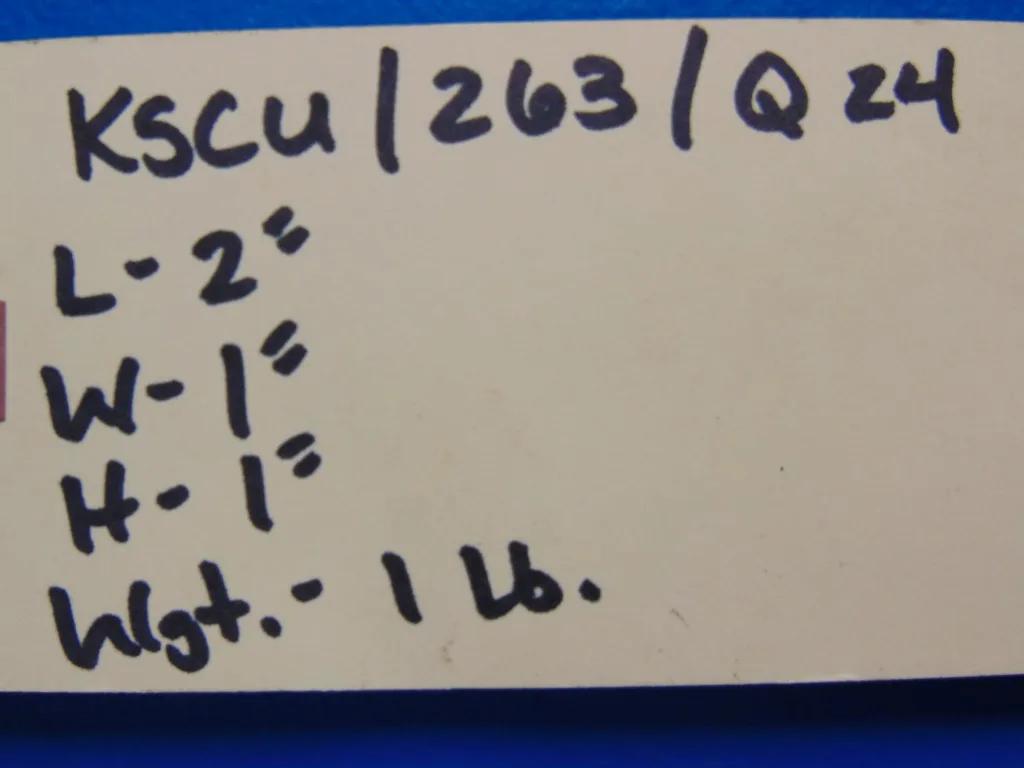 KSCU / 263 / Q 24
L - 2"
W - 1"
H - 1"
Wgt. - 1 Lb.